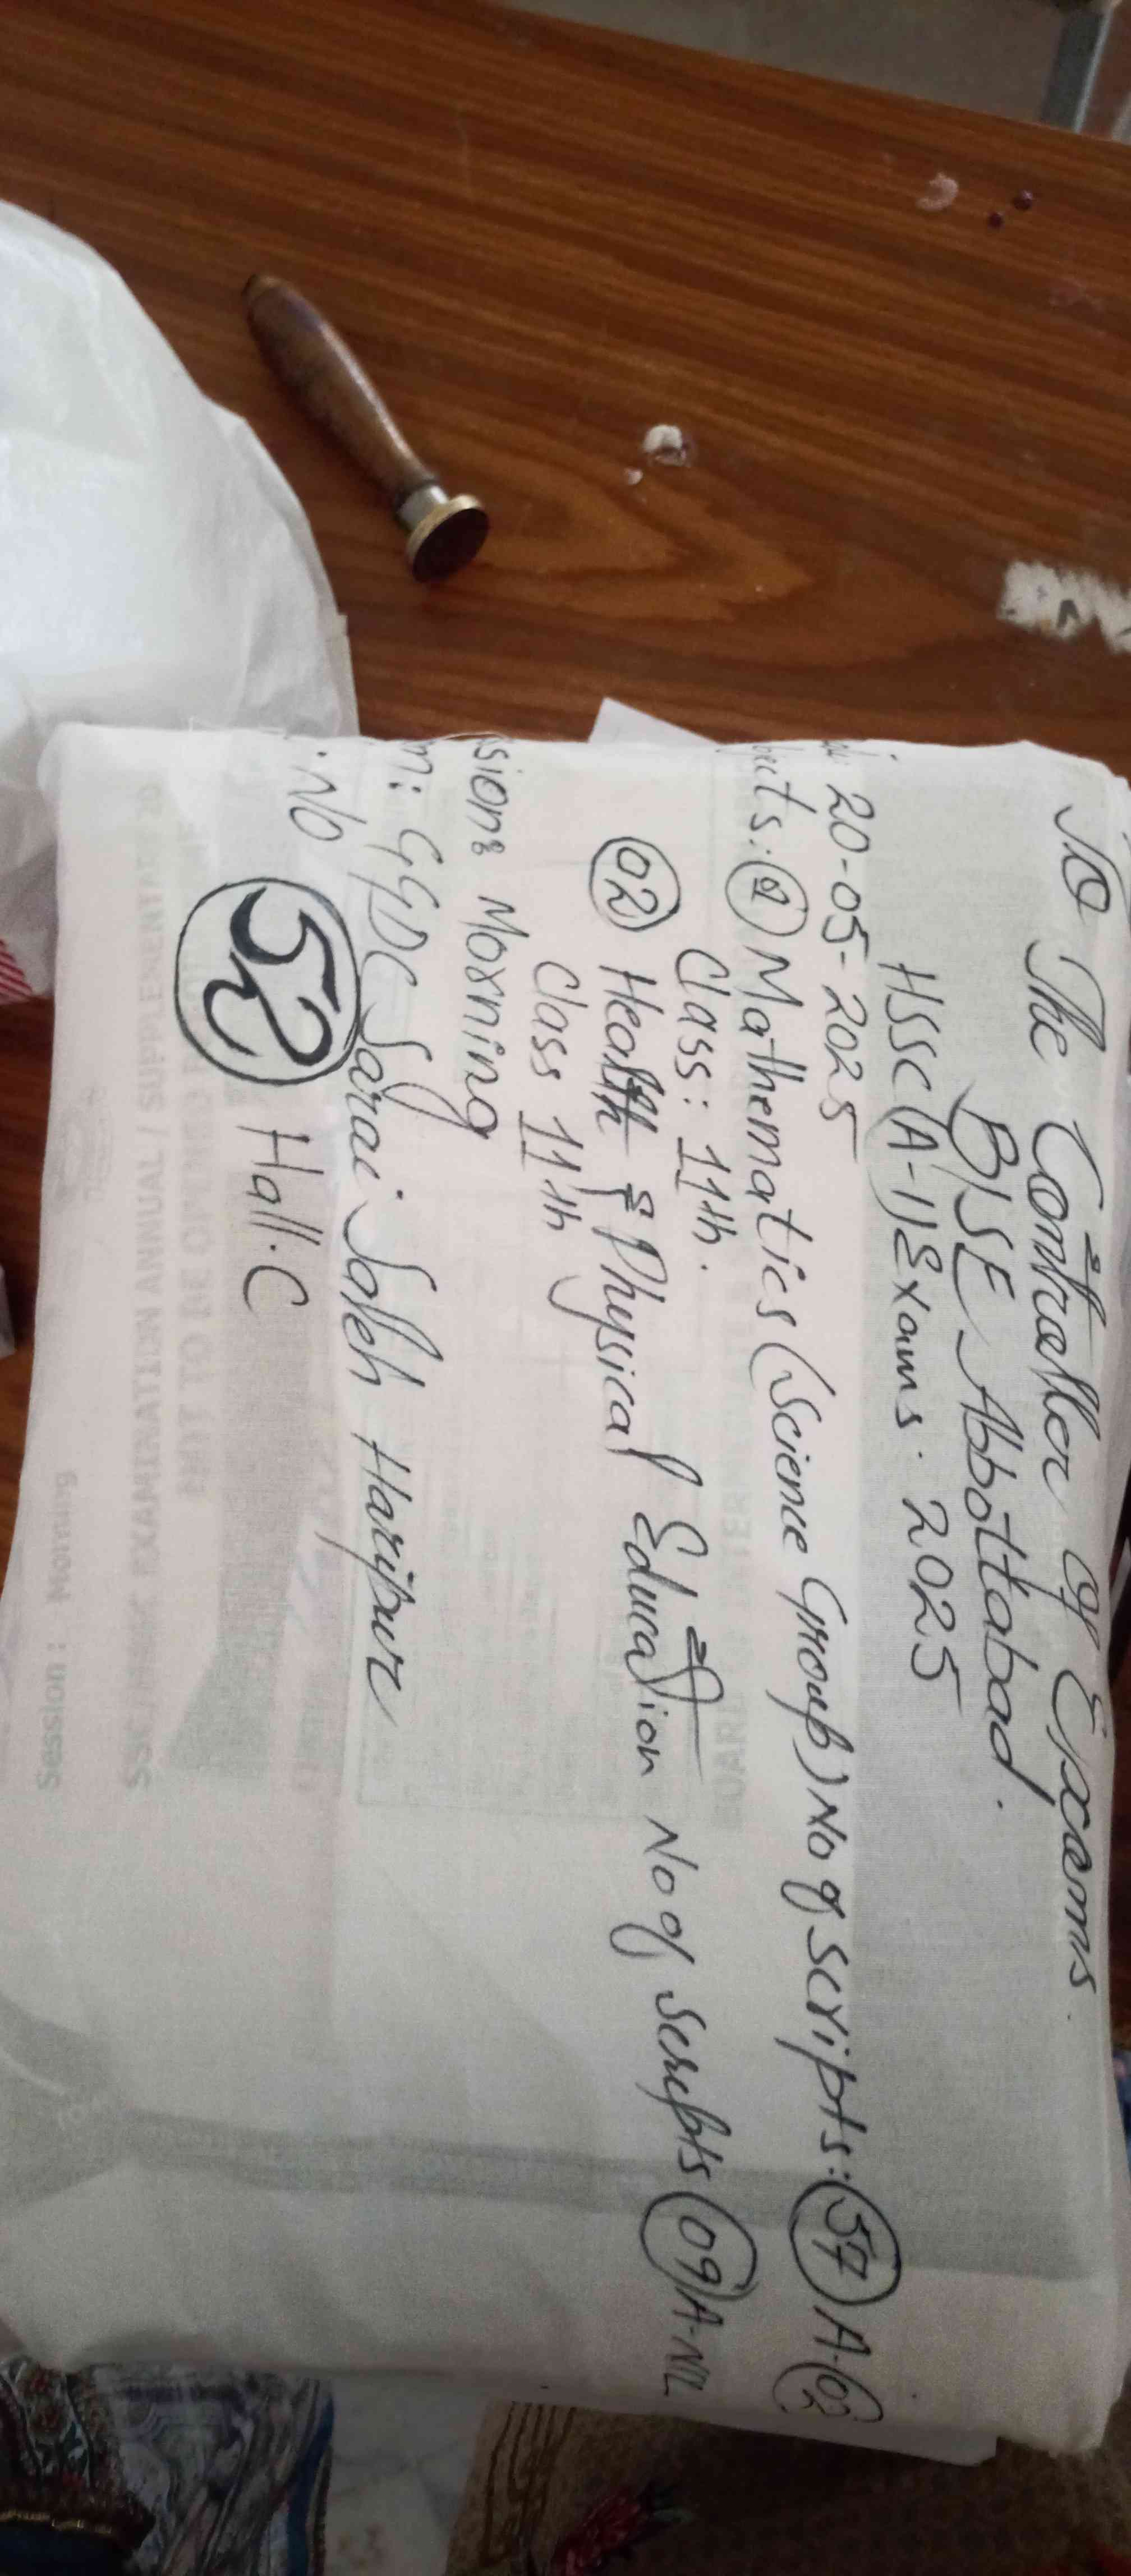 To The Controller of Exams.
BISE Abbottabad.
HSSC (A-1) Exams. 2025
20-05-2025
Mathematics (Science Group) No of scripts: 57 A-02
Class: 11th.
02 Health & Physical Education No of scripts 09 A-NIL
Class 11th
Morning
GGDC Sarai Saleh Haripur
No 52 Hall.C
EXAMINATION ANNUAL / SUPPLEMENTARY
Session : Morning